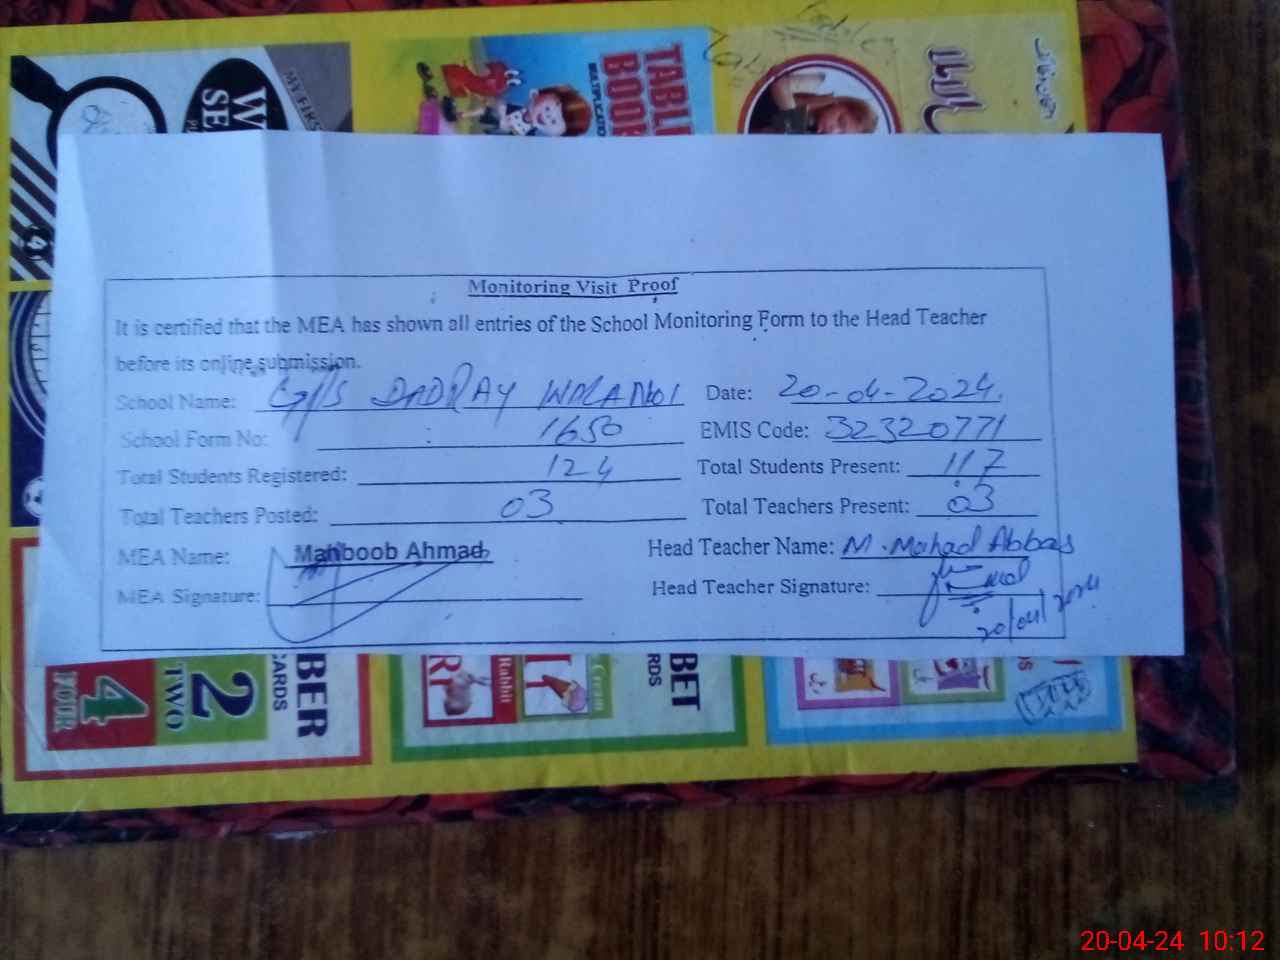 MY FIRST
TABLE
BOOK
Monitoring Visit Proof
It is certified that the MEA has shown all entries of the School Monitoring Form to the Head Teacher
before its online submission.
School Name: DADRAY WALA No1 Date: 20-04-2024.
School Form No: 1650 EMIS Code: 32320771
Total Students Registered: 124 Total Students Present: 117
Total Teachers Posted: 03 Total Teachers Present: 03
MEA Name: Mahboob Ahmad Head Teacher Name: M. Mahad Abbas
MEA Signature: Head Teacher Signature:
20/04/2024
4
FOUR
2
TWO
BER
CARDS
Rabbit
Cream
BET
RDS
20-04-24 10:12